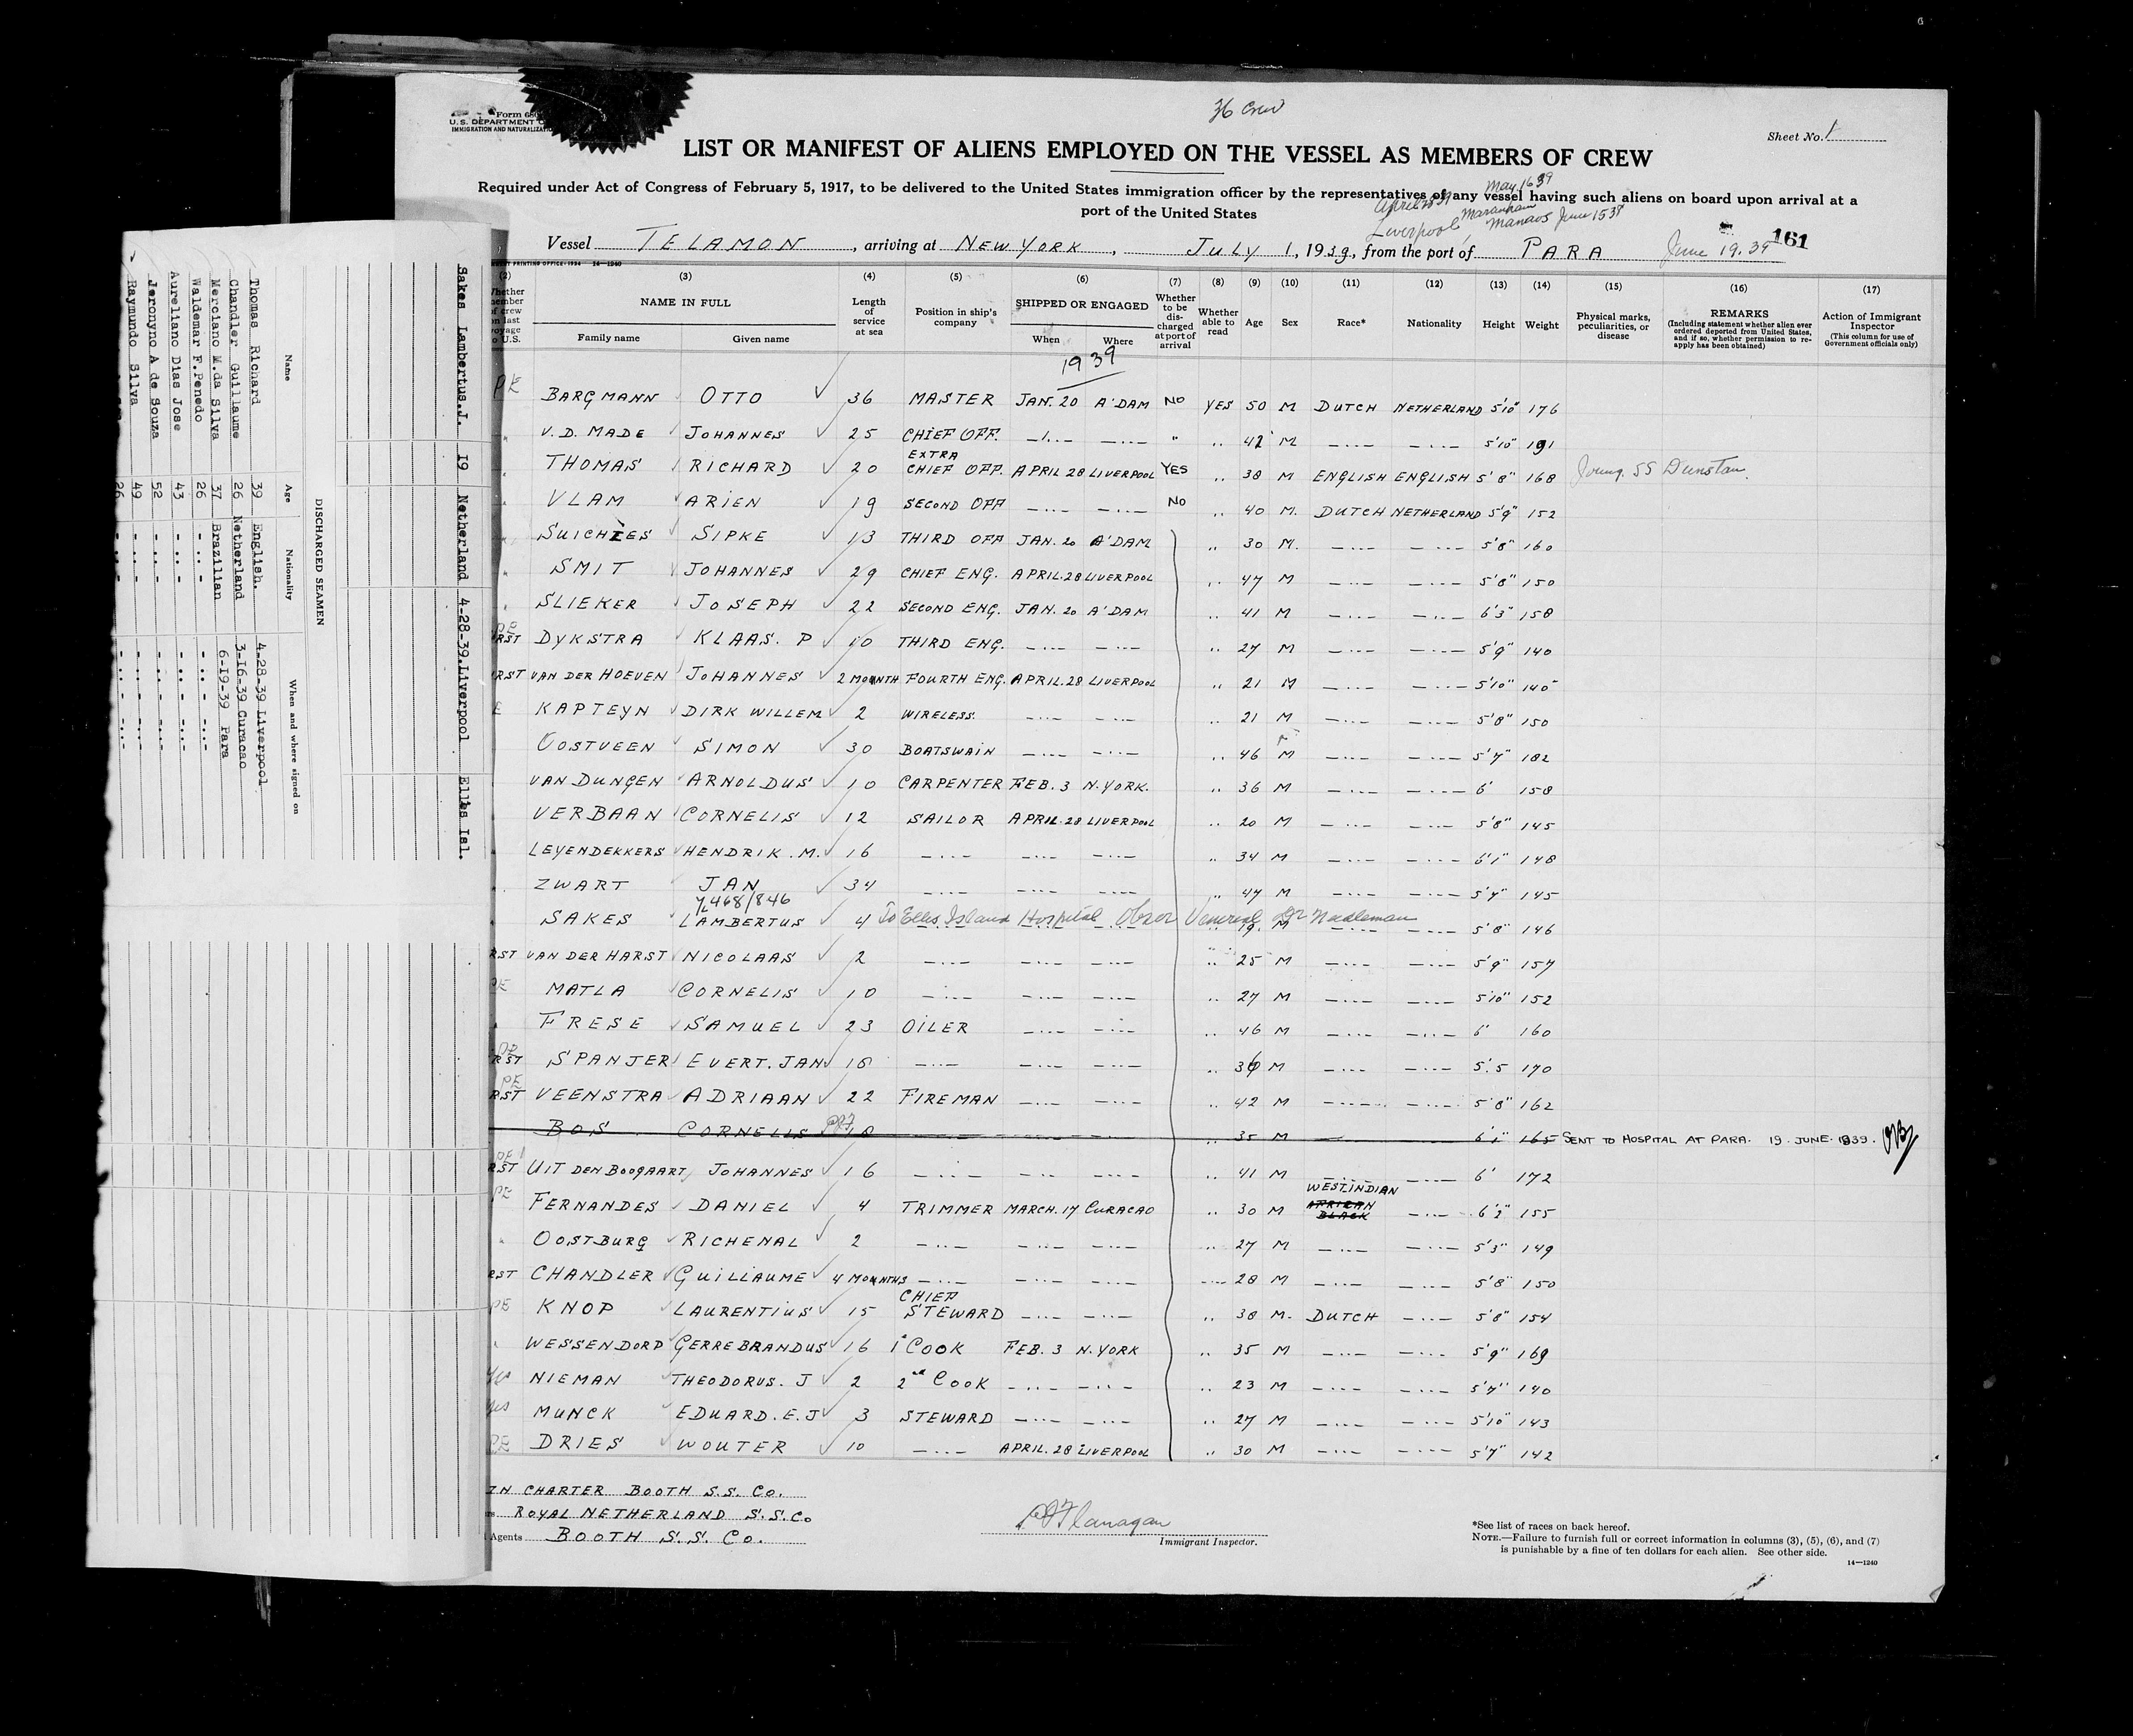 36 Crew
Form 680
U.S. DEPARTMENT O
IMMIGRATION AND NATURALIZATI
Sheet No. 1
LIST OR MANIFEST OF ALIENS EMPLOYED ON THE VESSEL AS MEMBERS OF CREW
Required under Act of Congress of February 5, 1917, to be delivered to the United States immigration officer by the representatives of any vessel having such aliens on board upon arrival at a
port of the United States
April 28 39 May 16 39
Liverpool, Maranham Manaos June 15 39
Vessel TELAMON, arriving at NEW YORK, JULY 1, 1939, from the port of PARA June 19.39 161
PRINTING OFFICE: 1934 14—1240
(2) (3) (4) (5) (6) (7) (8) (9) (10) (11) (12) (13) (14) (15) (16) (17)
Whether member of crew on last voyage to U.S.
NAME IN FULL
Family name Given name
Length of service at sea
Position in ship's company
SHIPPED OR ENGAGED
When Where
Whether to be discharged at port of arrival
Whether able to read
Age Sex Race* Nationality Height Weight
Physical marks, peculiarities, or disease
REMARKS
(Including statement whether alien ever ordered deported from United States, and if so, whether permission to re-apply has been obtained)
Action of Immigrant Inspector
(This column for use of Government officials only)
1939
PE BARGMANN OTTO 36 MASTER JAN. 20 A'DAM NO YES 50 M DUTCH NETHERLAND 5'10" 176
" V.D. MADE JOHANNES 25 CHIEF OFF. —"— —"— " " 42 M —"— —"— 5'10" 191
" THOMAS RICHARD 20 EXTRA CHIEF OFF. APRIL 28 LIVERPOOL YES " 38 M ENGLISH ENGLISH 5'8" 168 Joining SS Dunstan
" VLAM ARIEN 19 SECOND OFF —"— —"— NO " 40 M. DUTCH NETHERLAND 5'9" 152
" SUICHIES SIPKE 13 THIRD OFF JAN. 20 A'DAM " 30 M. —"— —"— 5'8" 160
" SMIT JOHANNES 29 CHIEF ENG. APRIL.28 LIVERPOOL " 47 M —"— —"— 5'8" 150
" SLIEKER JOSEPH 22 SECOND ENG. JAN. 20 A'DAM " 41 M —"— —"— 6'3" 158
PE RST DYKSTRA KLAAS. P 10 THIRD ENG. —"— —"— " 27 M —"— —"— 5'9" 140
RST VAN DER HOEVEN JOHANNES 2 MONTH FOURTH ENG. APRIL.28 LIVERPOOL " 21 M —"— —"— 5'10" 140
E KAPTEYN DIRK WILLEM 2 WIRELESS. —"— —"— " 21 M —"— —"— 5'8" 150
OOSTVEEN SIMON 30 BOATSWAIN —"— —"— " 46 M —"— —"— 5'7" 182
VAN DUNGEN ARNOLDUS 10 CARPENTER FEB. 3 N.YORK. " 36 M —"— —"— 6' 158
VERBAAN CORNELIS 12 SAILOR APRIL.28 LIVERPOOL " 20 M —"— —"— 5'8" 145
LEYENDEKKERS HENDRIK.M. 16 —"— —"— —"— " 34 M —"— —"— 6'1" 148
ZWART JAN 34 —"— —"— —"— " 47 M —"— —"— 5'7" 145
468/846
SAKES LAMBERTUS 4 To Ellis Island Hospital Obser Venereal Dr Nadleman 19. M —"— —"— 5'8" 146
RST VAN DER HARST NICOLAAS 2 —"— —"— —"— " 25 M —"— —"— 5'9" 157
PE MATLA CORNELIS 10 —"— —"— —"— " 27 M —"— —"— 5'10" 152
" FRESE SAMUEL 23 OILER —"— —"— " 46 M —"— —"— 6' 160
RST SPANJER EVERT.JAN 18 —"— —"— —"— " 36 M —"— —"— 5'.5 170
PE RST VEENSTRA ADRIAAN 22 FIREMAN —"— —"— " 42 M —"— —"— 5'8" 162
BOS CORNELIS 18 —"— —"— —"— " 35 M — 6'1" 165 SENT TO HOSPITAL AT PARA. 19. JUNE. 1939.
PE RST UIT DEN BOOGAART JOHANNES 16 —"— —"— —"— " 41 M —"— —"— 6' 172
PE FERNANDES DANIEL 4 TRIMMER MARCH.17 CURACAO " 30 M WEST.INDIAN AFRICAN BLACK —"— 6'2" 155
" OOSTBURG RICHENAL 2 —"— —"— —"— " 27 M —"— —"— 5'3" 149
RST CHANDLER GUILLAUME 4 MONTHS —"— —"— —"— " 28 M —"— —"— 5'8" 150
PE KNOP LAURENTIUS 15 CHIEF STEWARD —"— —"— " 38 M. DUTCH —"— 5'8" 154
" WESSENDORP GERREBRANDUS 16 1e COOK FEB. 3 N.YORK " 35 M —"— —"— 5'9" 169
yes NIEMAN THEODORUS. J 2 2nd COOK —"— —"— " 23 M —"— —"— 5'7" 140
yes MUNCK EDUARD.E.J 3 STEWARD —"— —"— " 27 M —"— —"— 5'10" 143
PE DRIES WOUTER 10 —"— APRIL.28 LIVERPOOL " 30 M —"— —"— 5'7" 142
IN CHARTER BOOTH S.S. Co.
ROYAL NETHERLAND S.S.Co
Agents BOOTH S.S. Co.
Flanagan
Immigrant Inspector.
*See list of races on back hereof.
NOTE.—Failure to furnish full or correct information in columns (3), (5), (6), and (7)
is punishable by a fine of ten dollars for each alien. See other side.
14—1240
Sakes Lambertus.J. 19 Netherland 4-28-39.Liverpool Ellis Isl.
DISCHARGED SEAMEN
Name Age Nationality When and where signed on
Thomas Richard 39 English. 4-28-39 Liverpool
Chandler Guillaume 26 Netherland 3-16-39 Curacao
Merciano M.da Silva 37 Brazilian 6-19-39 Para
Waldemar F.Penedo 26 - .. - - .. - -..-
Aureliano Dias Jose 43 - .. - - .. - -..-
Jeronyno A de Souza 52 - .. - - .. - -..-
Raymundo Silva 49 - .. - - .. - -..-
26 - .. - - .. - -..-